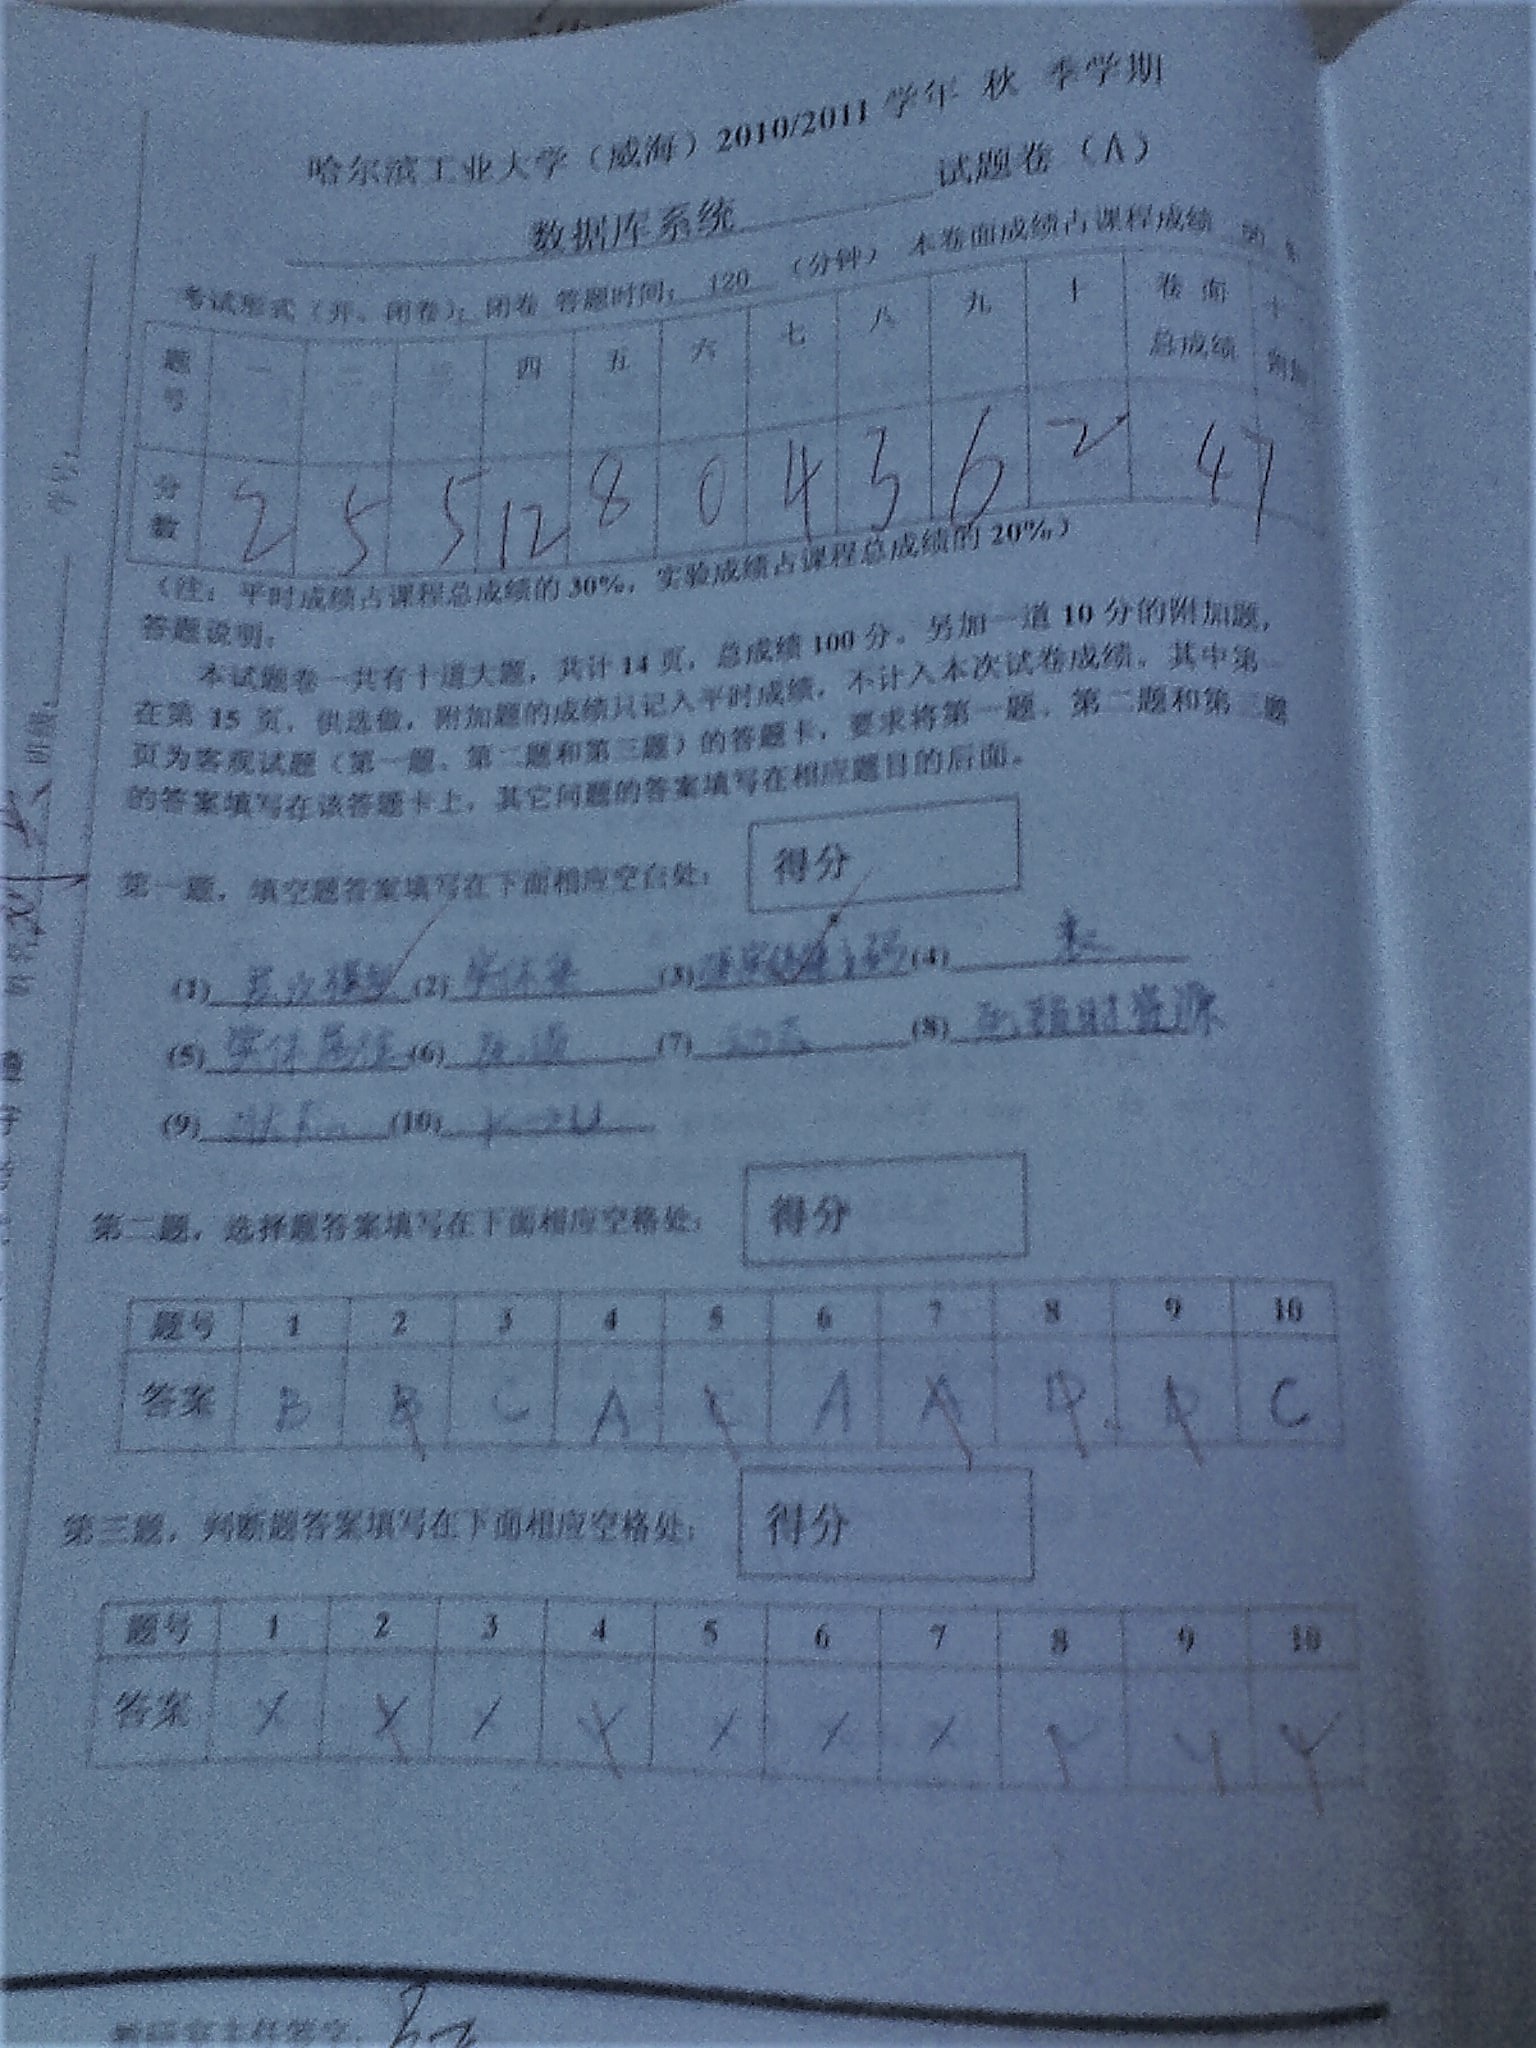 哈尔滨工业大学（威海）2010/2011 学年 秋 季学期
数据库系统 试题卷（A）
考试形式（开、闭卷）：闭卷 答题时间： 120 （分钟） 本卷面成绩占课程成绩
题号 一 二 三 四 五 六 七 八 九 十 卷面总成绩 十一附加
分数 2 5 5 12 8 0 4 3 6 2 47
（注：平时成绩占课程总成绩的 30%，实验成绩占课程总成绩的 20%）
答题说明：
本试题卷一共有十道大题，共计 14 页，总成绩 100 分。另加一道 10 分的附加题，
在第 15 页，供选做，附加题的成绩只记入平时成绩，不计入本次试卷成绩。其中第一
页为客观试题（第一题、第二题和第三题）的答题卡，要求将第一题、第二题和第三题
的答案填写在该答题卡上，其它问题的答案填写在相应题目的后面。
第一题，填空题答案填写在下面相应空白处： 得分
(1) (2) 实体集 (3) (4) 表
(5) 实体属性 (6) (7) 动态 (8) 死锁时资源
(9) (10)
第二题，选择题答案填写在下面相应空格处： 得分
题号 1 2 3 4 5 6 7 8 9 10
答案 B B C A C A A D D C
第三题，判断题答案填写在下面相应空格处： 得分
题号 1 2 3 4 5 6 7 8 9 10
答案 × × × × × × ×
学号：
班级：